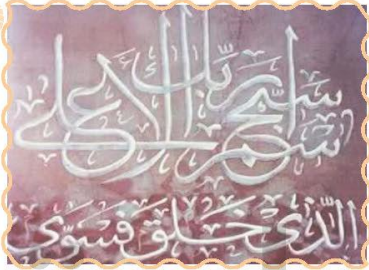 سبح اسم ربك الاعلى
الذي خلق فسوى